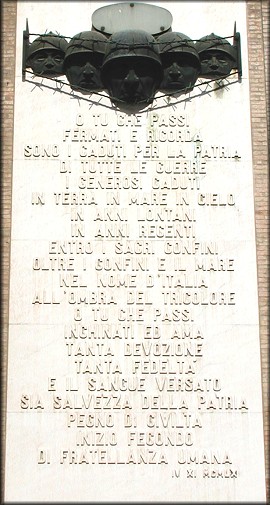 O TU CHE PASSI,
FERMATI E RICORDA
SONO I CADUTI PER LA PATRIA
DI TUTTE LE GUERRE
GENEROSI CADUTI
IN TERRA IN MARE IN CIELO
IN ANNI LONTANI
IN ANNI RECENTI
ENTRO I SACRI CONFINI
OLTRE I CONFINI E IL MARE
NEL NOME D'ITALIA
ALL'OMBRA DEL TRICOLORE
O TU CHE PASSI,
INCHINATI ED AMA
TANTA DEVOZIONE
TANTA FEDELTA'
E IL SANGUE VERSATO
SIA SALVEZZA DELLA PATRIA
PEGNO DI CIVILTA'
INIZIO FECONDO
DI FRATELLANZA UMANA
IV XI MCMLXI